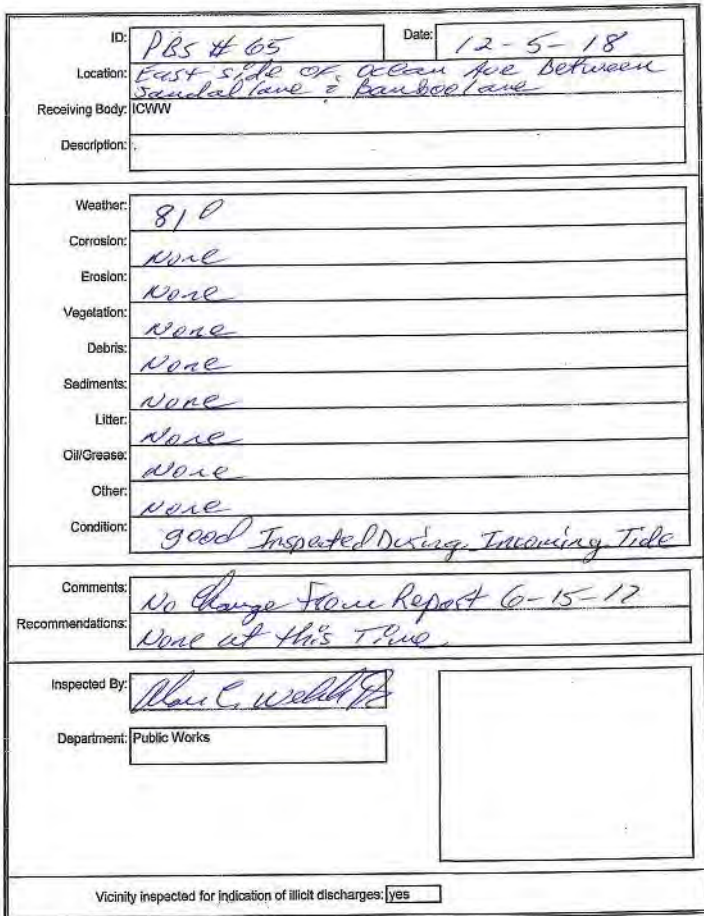 ID: PBS # 65 Date: 12-5-18
Location: East side of Ocean Ave Between
Sandal lane & Bamboo lane
Receiving Body: ICWW
Description: .
Weather: 81°
Corrosion: None
Erosion: None
Vegetation: None
Debris: None
Sediments: None
Litter: None
Oil/Grease: None
Other: None
Condition: good Inspected During Incoming Tide
Comments: No Change From Report 6-15-17
Recommendations: None at this Time
Inspected By: Alan C. Welch Jr
Department: Public Works
Vicinity inspected for indication of illicit discharges: yes